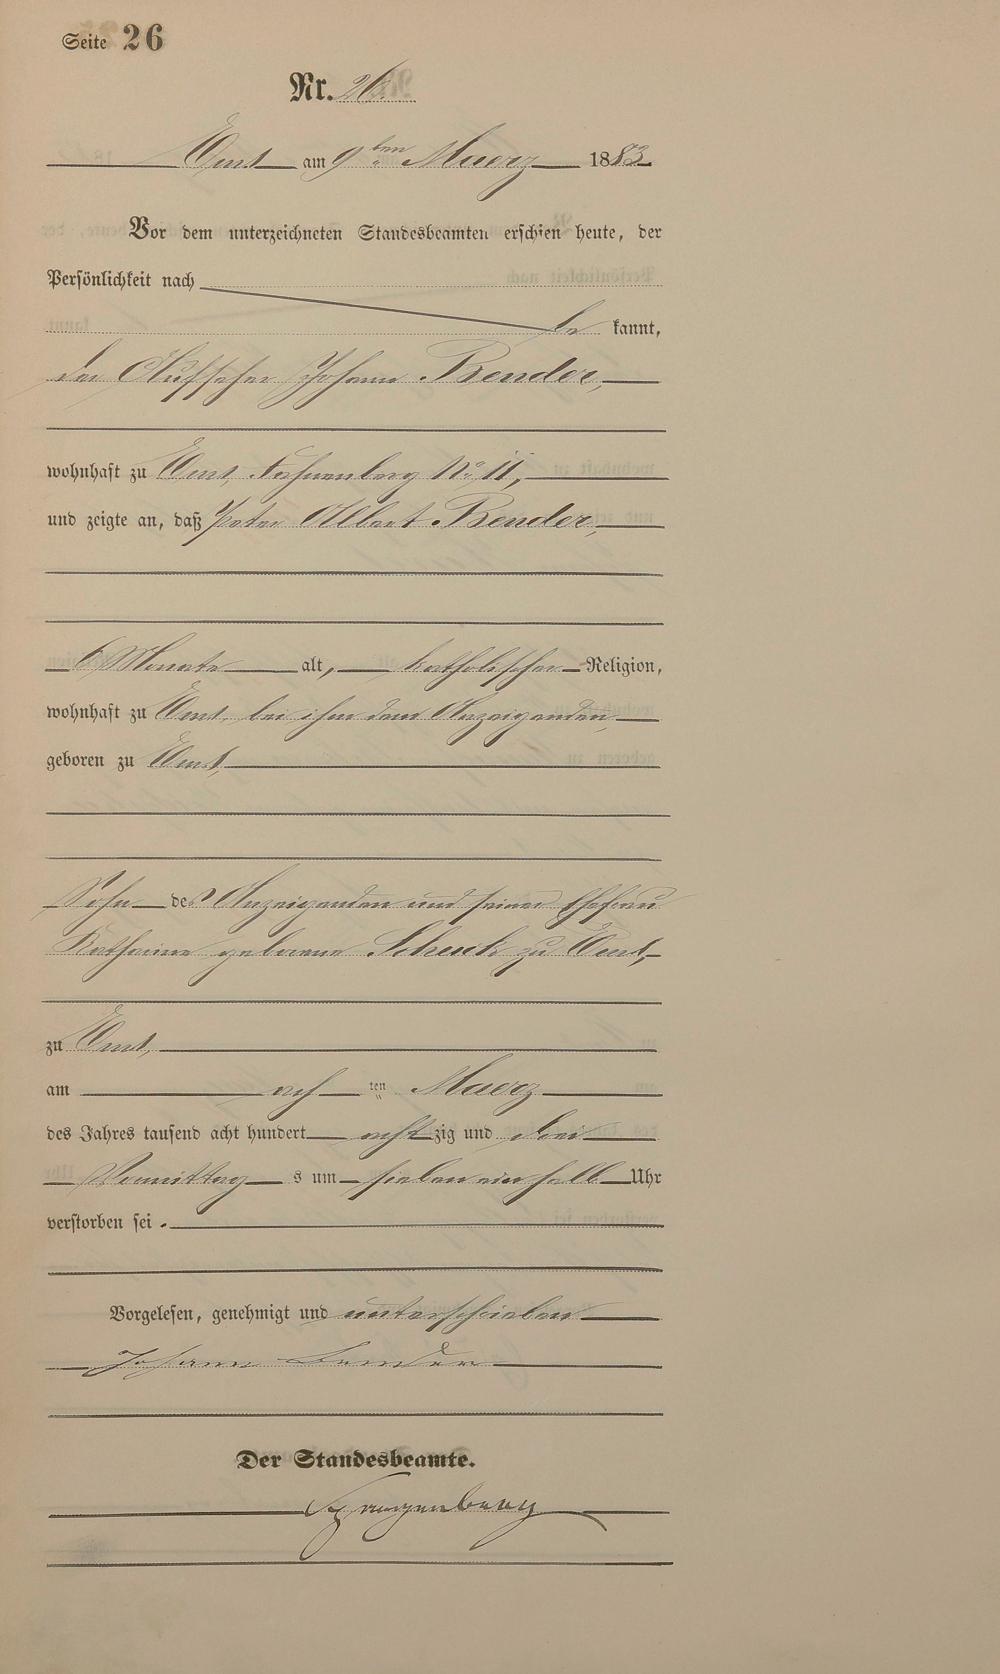 Seite 26
Nr. 26.
Ems am 9ten Maerz 1883.
Vor dem unterzeichneten Standesbeamten erschien heute, der
Persönlichkeit nach
be kannt,
der Aufseher Johann Bender,
wohnhaft zu Ems, No 11,
und zeigte an, daß Peter Albert Bender,
6 Monate alt, katholischer Religion,
wohnhaft zu Ems, bei ihm dem Anzeigenden,
geboren zu Ems,
Sohn des Anzeigenden und seiner Ehefrau
Katharine geborene Schenk zu Ems,
zu Ems,
am ach ten Maerz
des Jahres tausend acht hundert acht zig und drei
Vormittag s um sieben ein halb Uhr
verstorben sei.
Vorgelesen, genehmigt und unterschrieben
Johann Bender
Der Standesbeamte.